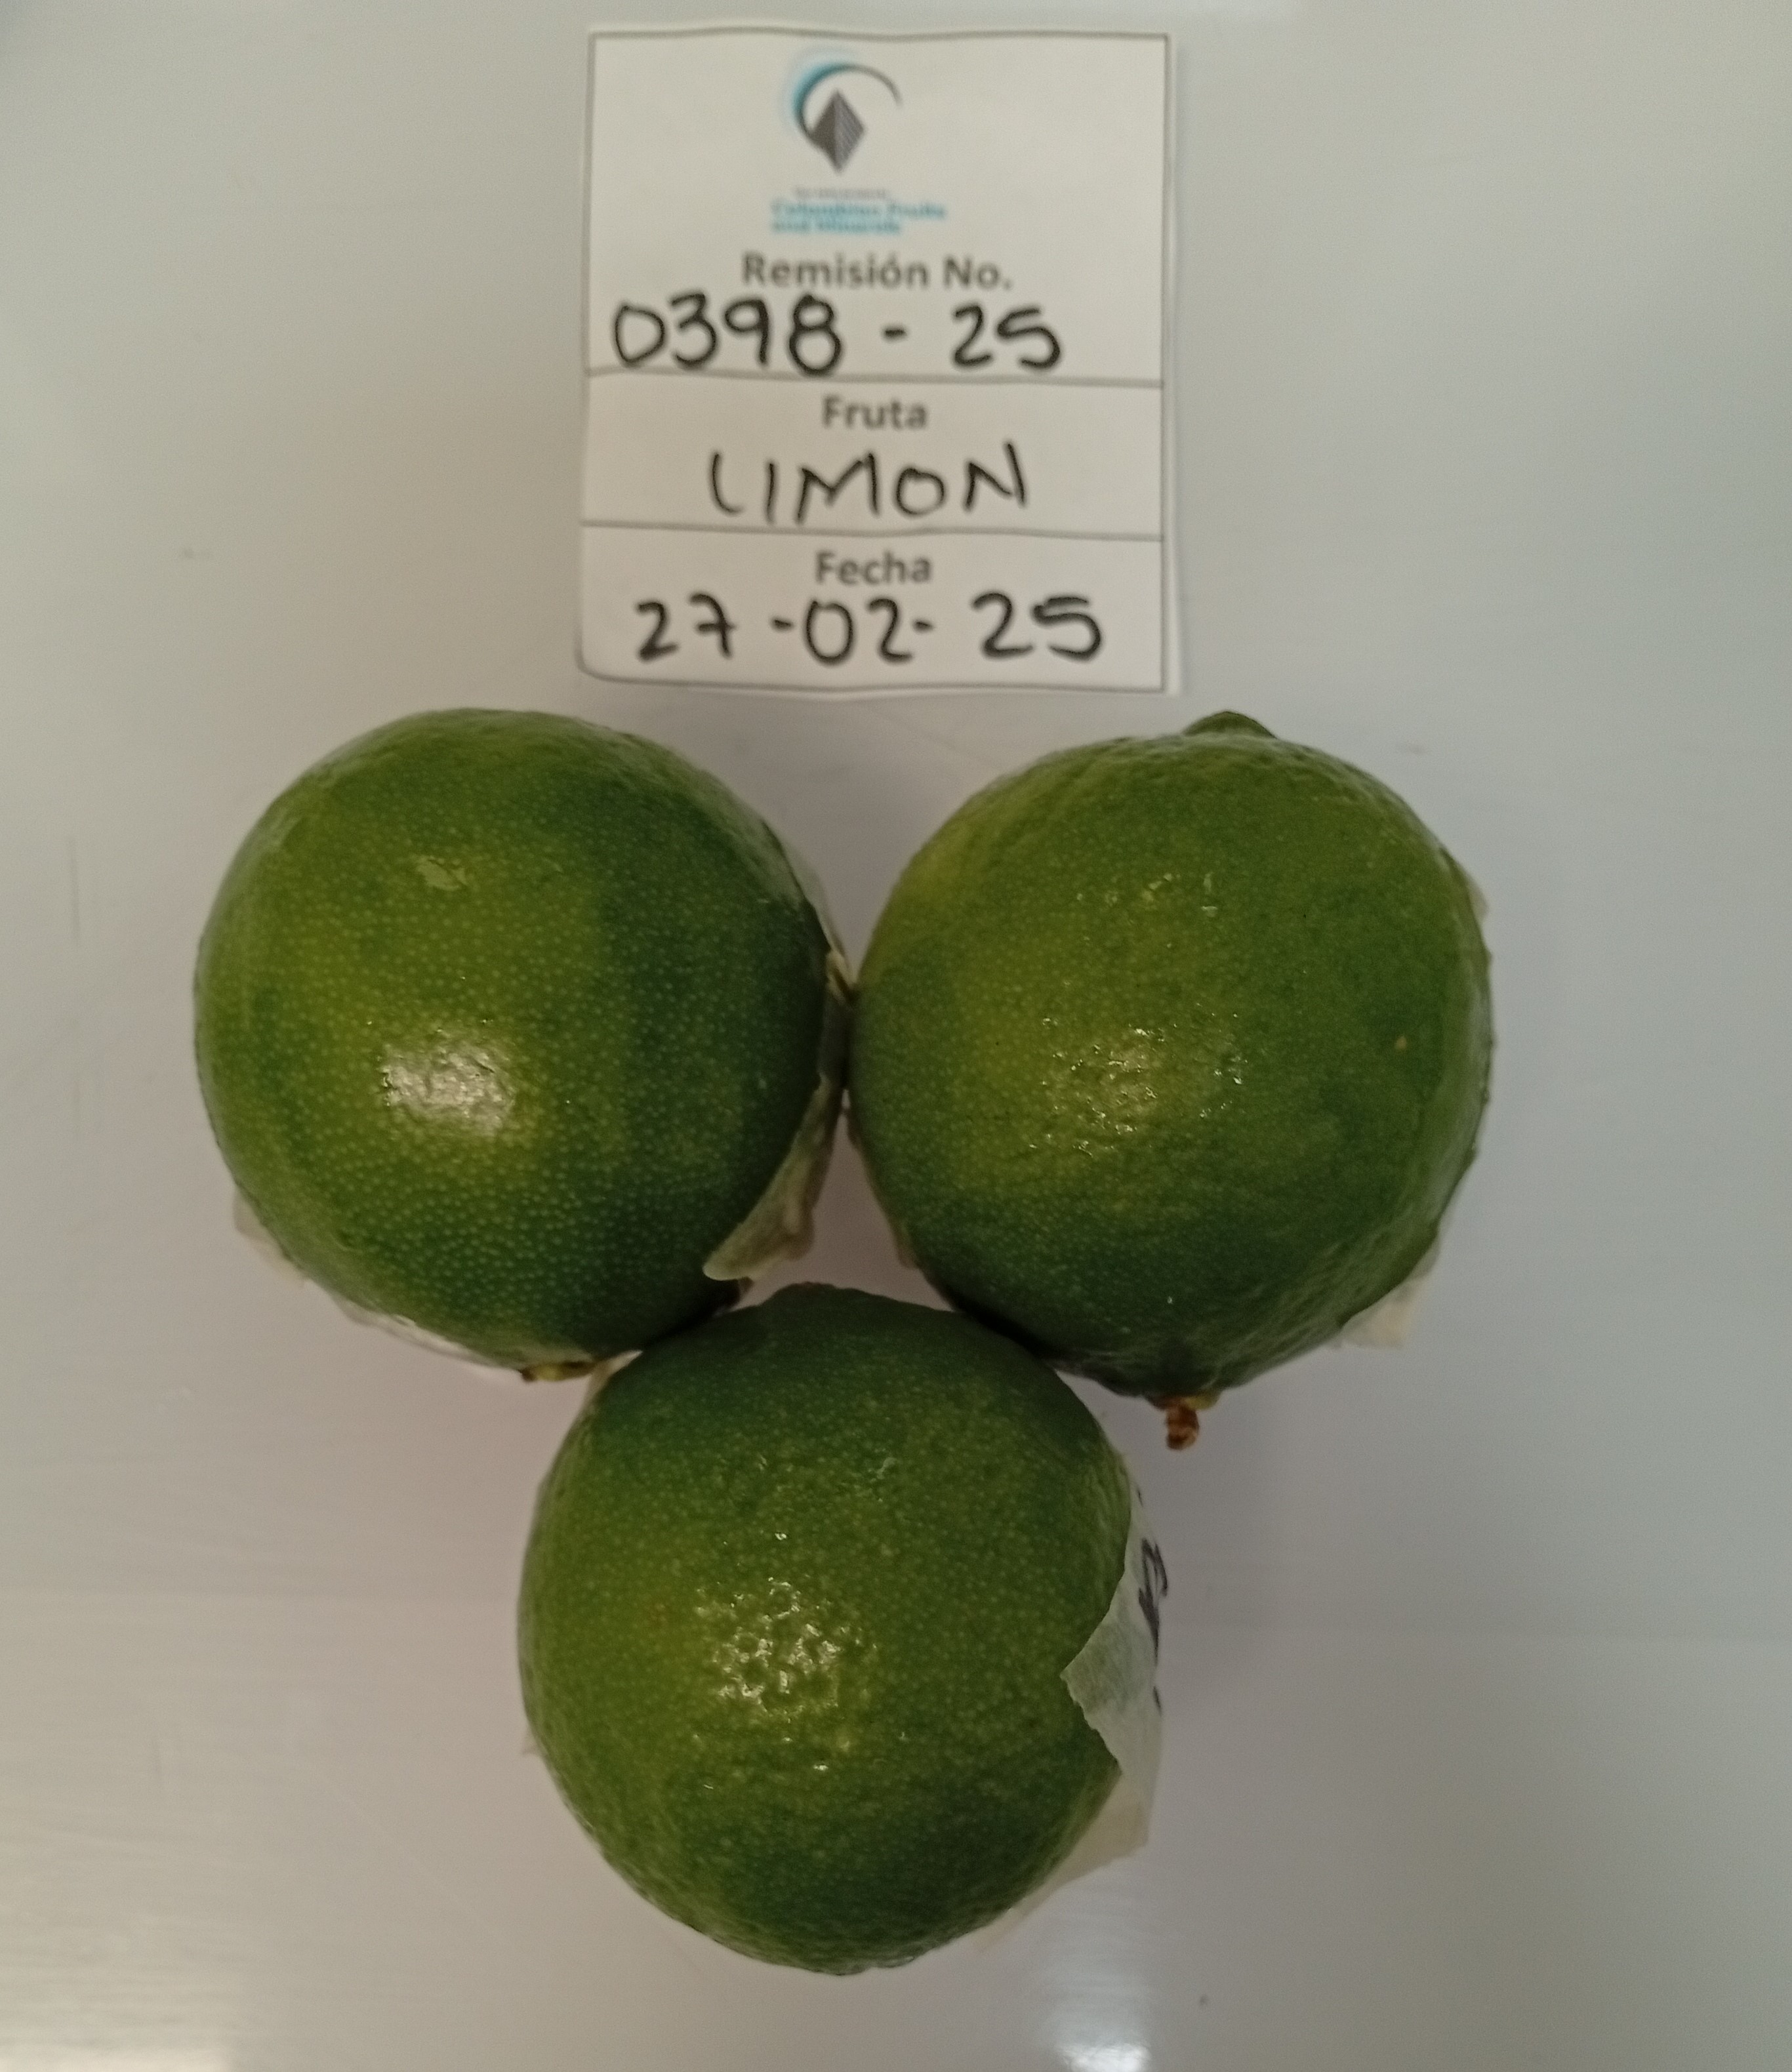 Colombian Fruits
and Minerals
Remisión No.
0398 - 25
Fruta
LIMON
Fecha
27-02-25